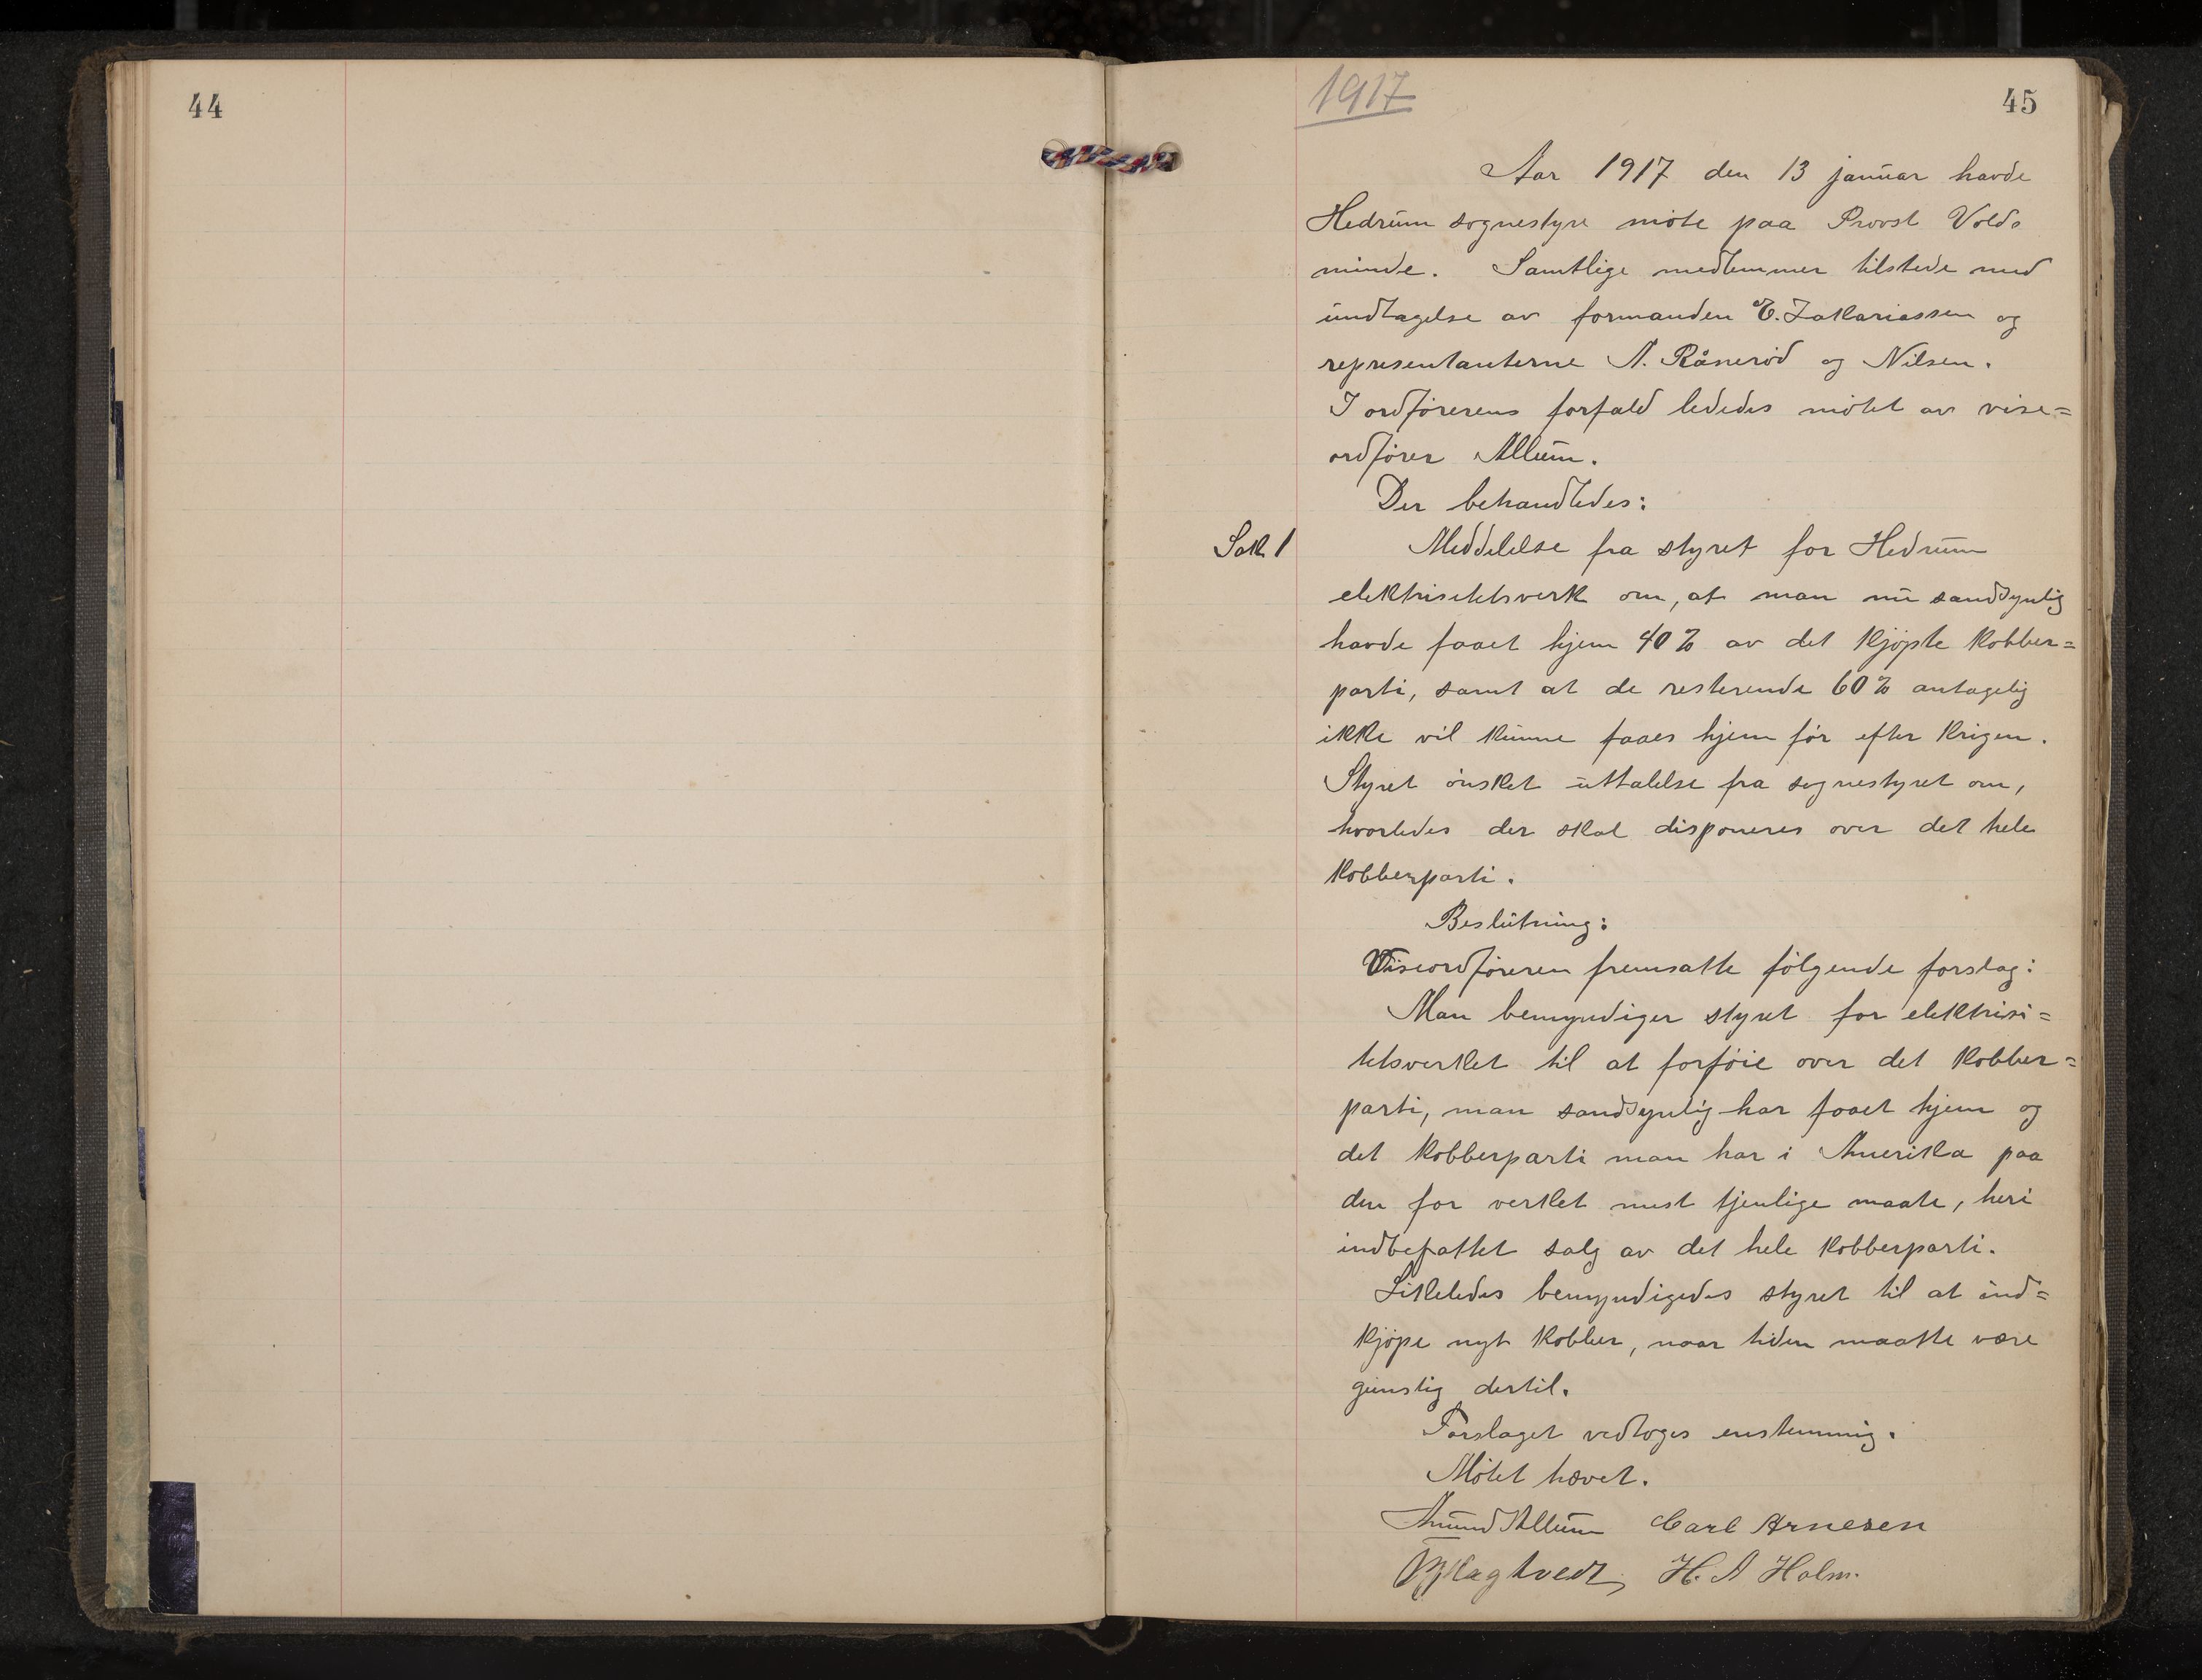 44
1917
45
Aar 1917 den 13 januar havde
Hedrum sognestyre møte paa Provst Volds
minde. Samtlige medlemmer tilstede med
undtagelse av formanden E. Zakariassen og
representanterne A. Rånerød og Nilsen.
I ordførerens forfald lededes møtet av vise=
ordfører Allum.
Der behandledes:
Sak 1 Meddelelse fra styret for Hedrum
elektrisitetsverk om, at man nu sandsynlig
havde faaet hjem 40% av det kjøpte kobber=
parti, samt at de resterende 60% antagelig
ikke vil kunne faaes hjem før efter krigen.
Styret ønsket uttalelse fra sognestyret om,
hvorledes der skal disponeres over det hele
kobberparti.
Beslutning:
Viseordføreren fremsatte følgende forslag:
Man bemyndiger styret for elektrisi=
tetsverket til at forføie over det kobber=
parti, man sandsynlig har faaet hjem og
det kobberparti man har i Amerika paa
den for verket mest tjenlige maate, heri
indbefattet salg av det hele kobberparti.
Likeledes bemyndigedes styret til at ind=
kjøpe nyt kobber, naar tiden maatte være
gunstig dertil.
Forslaget vedtoges enstemmig.
Møtet hævet.
Amund Allum Carl Arnesen
H. A Holm.